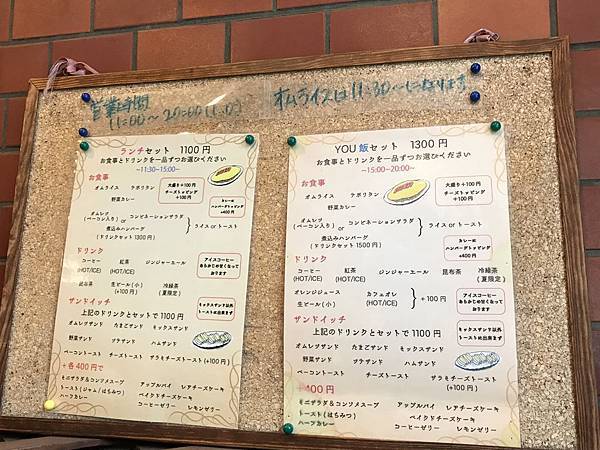 営業時間
11:00～20:00
オムライスは11:30～になります
ランチセット 1100円
お食事とドリンクを一品ずつお選びください
～11:30~15:00～
お食事
オムライス ナポリタン
野菜カレー
大盛り+100円
チーズトッピング
+100円
カレーに
ハンバーグトッピング
+400円
オムレツ
(ベーコン入り) or コンビネーションサラダ
ライス or トースト
煮込みハンバーグ
(ドリンクセット 1300円)
ドリンク
コーヒー 紅茶 ジンジャーエール
(HOT/ICE) (HOT/ICE)
昆布茶 生ビール(小) 冷緑茶
(+100円) (夏限定)
アイスコーヒー
あらかじめ甘くなって
おります
サンドイッチ
上記のドリンクとセットで 1100円
オムレツサンド たまごサンド ミックスサンド
野菜サンド ツナサンド ハムサンド
ベーコントースト チーズトースト サラミチーズトースト
(+100円)
ミックスサンド以外
トーストめ出来ます
+各400円で
ミニサラダ&コンソメスープ アップルパイ レアチーズケーキ
トースト(ジャム/はちみつ) ベイクドチーズケーキ
ハーフカレー コーヒーゼリー レモンゼリー
YOU飯セット 1300円
お食事とドリンクを一品ずつお選びください
～15:00~20:00～
お食事
オムライス ナポリタン
野菜カレー
大盛り+100円
チーズトッピング
+100円
オムレツ
(ベーコン入り) or コンビネーションサラダ
ライス or トースト
煮込みハンバーグ
(ドリンクセット 1500円)
カレーに
ハンバーグトッピング
+400円
ドリンク
コーヒー 紅茶 ジンジャーエール 昆布茶 冷緑茶
(HOT/ICE) (HOT/ICE) (夏限定)
オレンジジュース カフェオレ
生ビール(小) (HOT/ICE)
+100円
アイスコーヒー
あらかじめ甘くなって
おります
サンドイッチ
上記のドリンクとセットで 1100円
オムレツサンド たまごサンド ミックスサンド
野菜サンド ツナサンド ハムサンド
ベーコントースト チーズトースト サラミチーズトースト
(+100円)
ミックスサンド以外
トーストめ出来ます
400円で
ミニサラダ&コンソメスープ アップルパイ レアチーズケーキ
トースト(はちみつ) ベイクドチーズケーキ
ハーフカレー コーヒーゼリー レモンゼリー